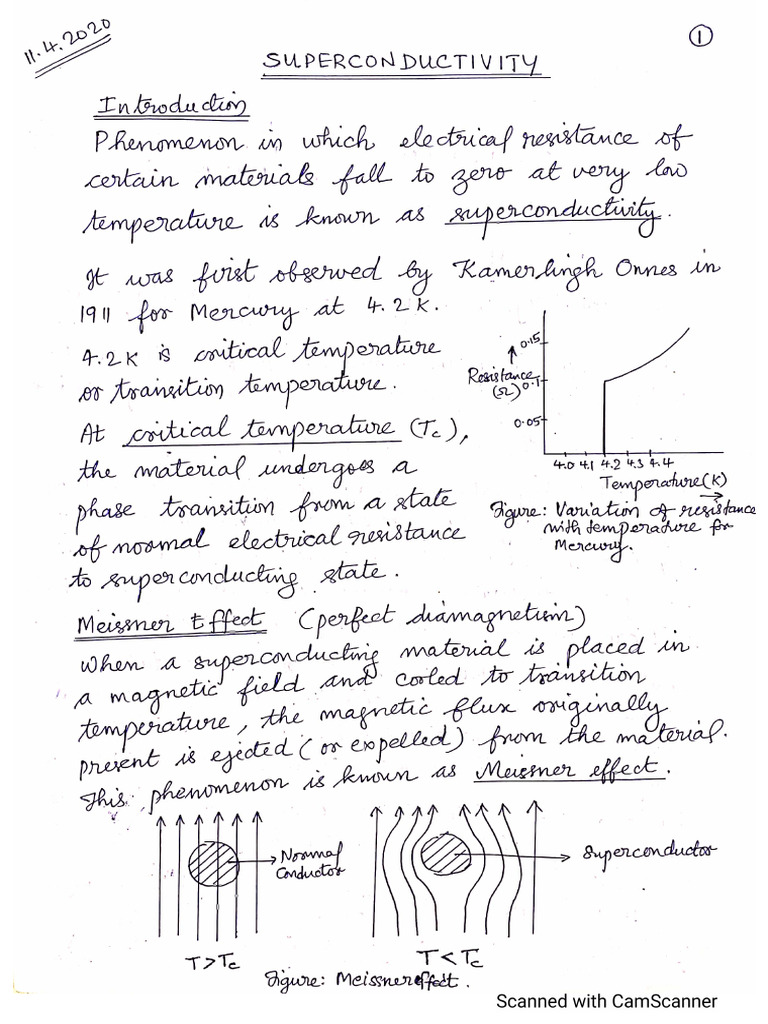 11.4.2020
1
SUPERCONDUCTIVITY
Introduction
Phenomenon in which electrical resistance of
certain materials fall to zero at very low
temperature is known as superconductivity.
It was first observed by Kamerlingh Onnes in
1911 for Mercury at 4.2K.
4.2K is critical temperature
or transition temperature.
At critical temperature (Tc),
the material undergoes a
phase transition from a state
of normal electrical resistance
to superconducting state.
0.15
Resistance
(Ω) 0.1
0.05
4.0 4.1 4.2 4.3 4.4
Temperature(K)
Figure: Variation of resistance
with temperature for
Mercury.
Meissner Effect (perfect diamagnetism)
When a superconducting material is placed in
a magnetic field and cooled to transition
temperature, the magnetic flux originally
present is ejected (or expelled) from the material.
This phenomenon is known as Meissner effect.
Normal
Conductor
Superconductor
T>Tc
T<Tc
Figure: Meissner effect.
Scanned with CamScanner